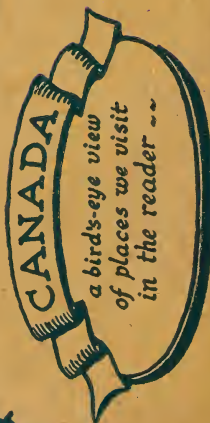 CANADA
a bird's-eye view
of places we visit
in the reader ~~